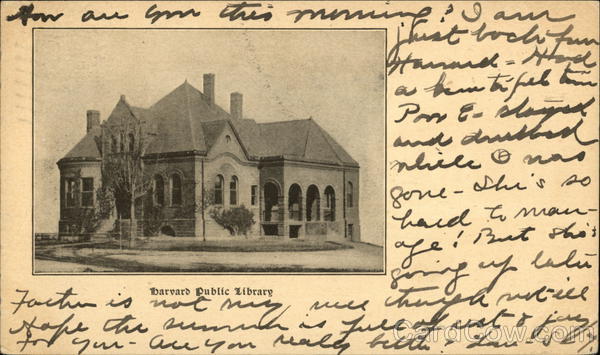 How are you this morning? I am
just back from
Harvard - Had
a beautiful time
Poor E - stayed
and
while I was
gone - She's so
hard to man-
age! But she's
going up later
Harvard Public Library
Father is not very well though not ill
Hope the summer is full of rest & joy
For you - Are you really better.
CardCow.com